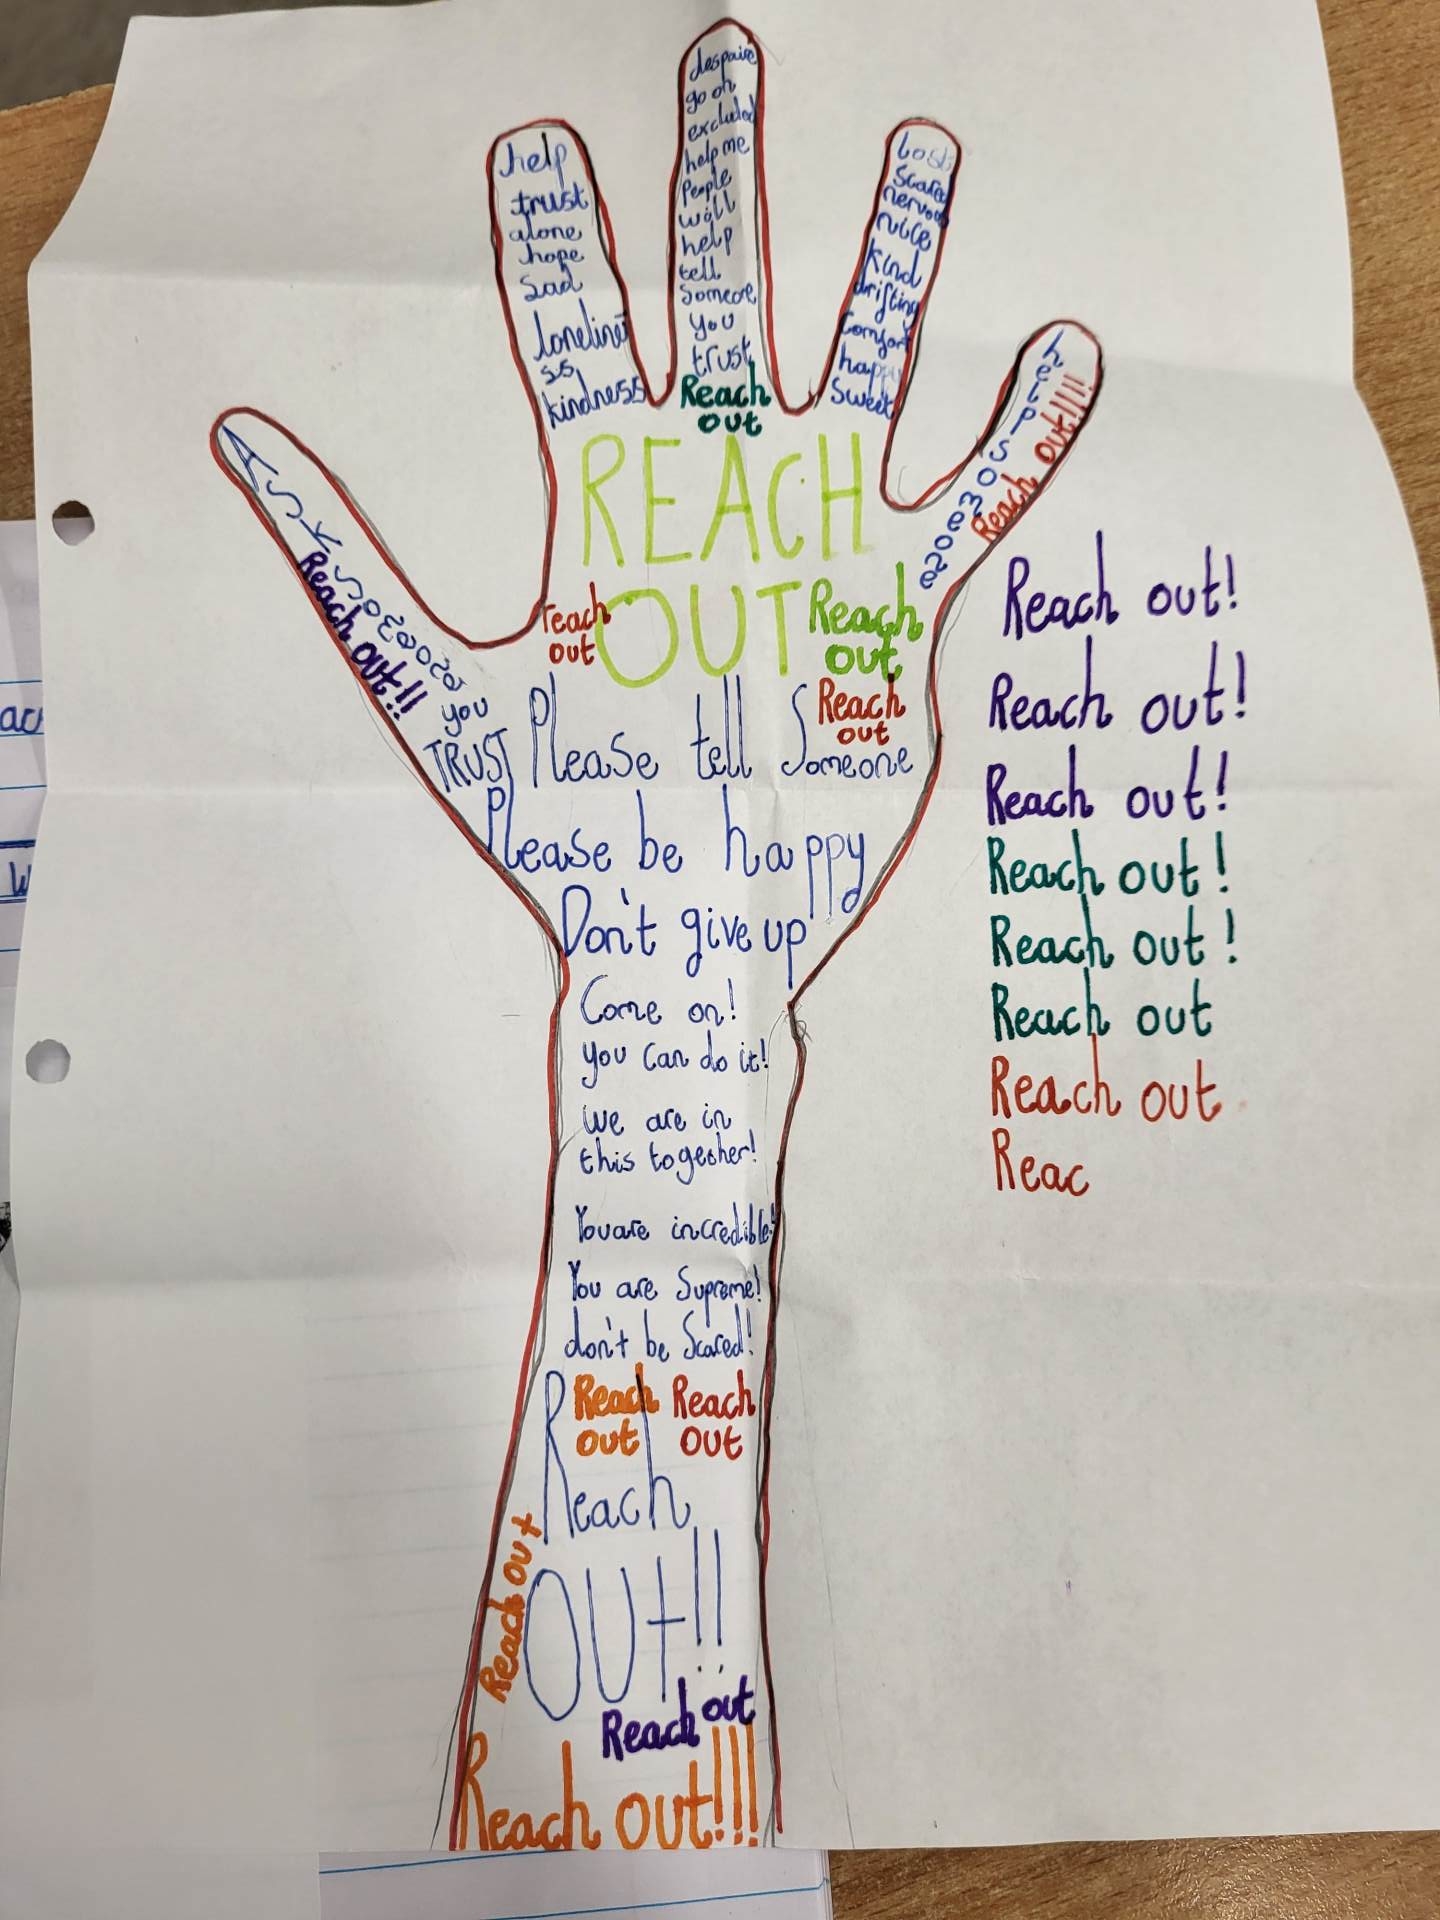 despaire
go on
excluded
help me
People
will
help
tell
someone
you
trust
Reach
out
help
trust
alone
hope
sad
loneline
ss
kindness
Lost
scared
nervous
nice
kind
drifting
comfort
happy
sweet
help someone
Reach out!!!!
ASK someone
you
TRUST
Reach out!!
REACH
OUT
reach
out
Reach
out
Reach
out
Please tell Someone
Please be happy
Don't give up
Come on!
you can do it!
we are in
this together!
You are incredible!
You are Supreme!
don't be Scared!
Reach
out
Reach
out
Reach
OUt!!
Reach out
Reach out
Reach out!!!
Reach out!
Reach out!
Reach out!
Reach out!
Reach out!
Reach out
Reach out
Reac